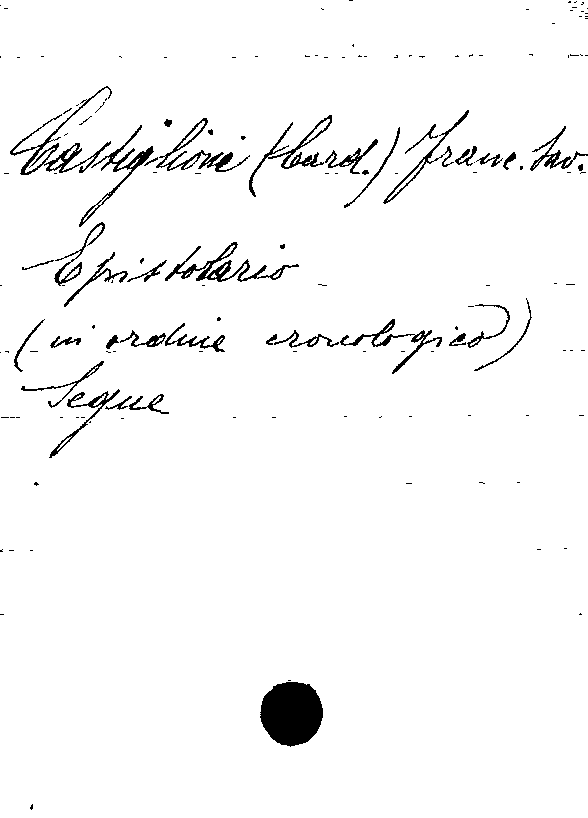 Castiglioni (Card.) Franc. Sav.
Epistolario
(in ordine cronologico)
Segue